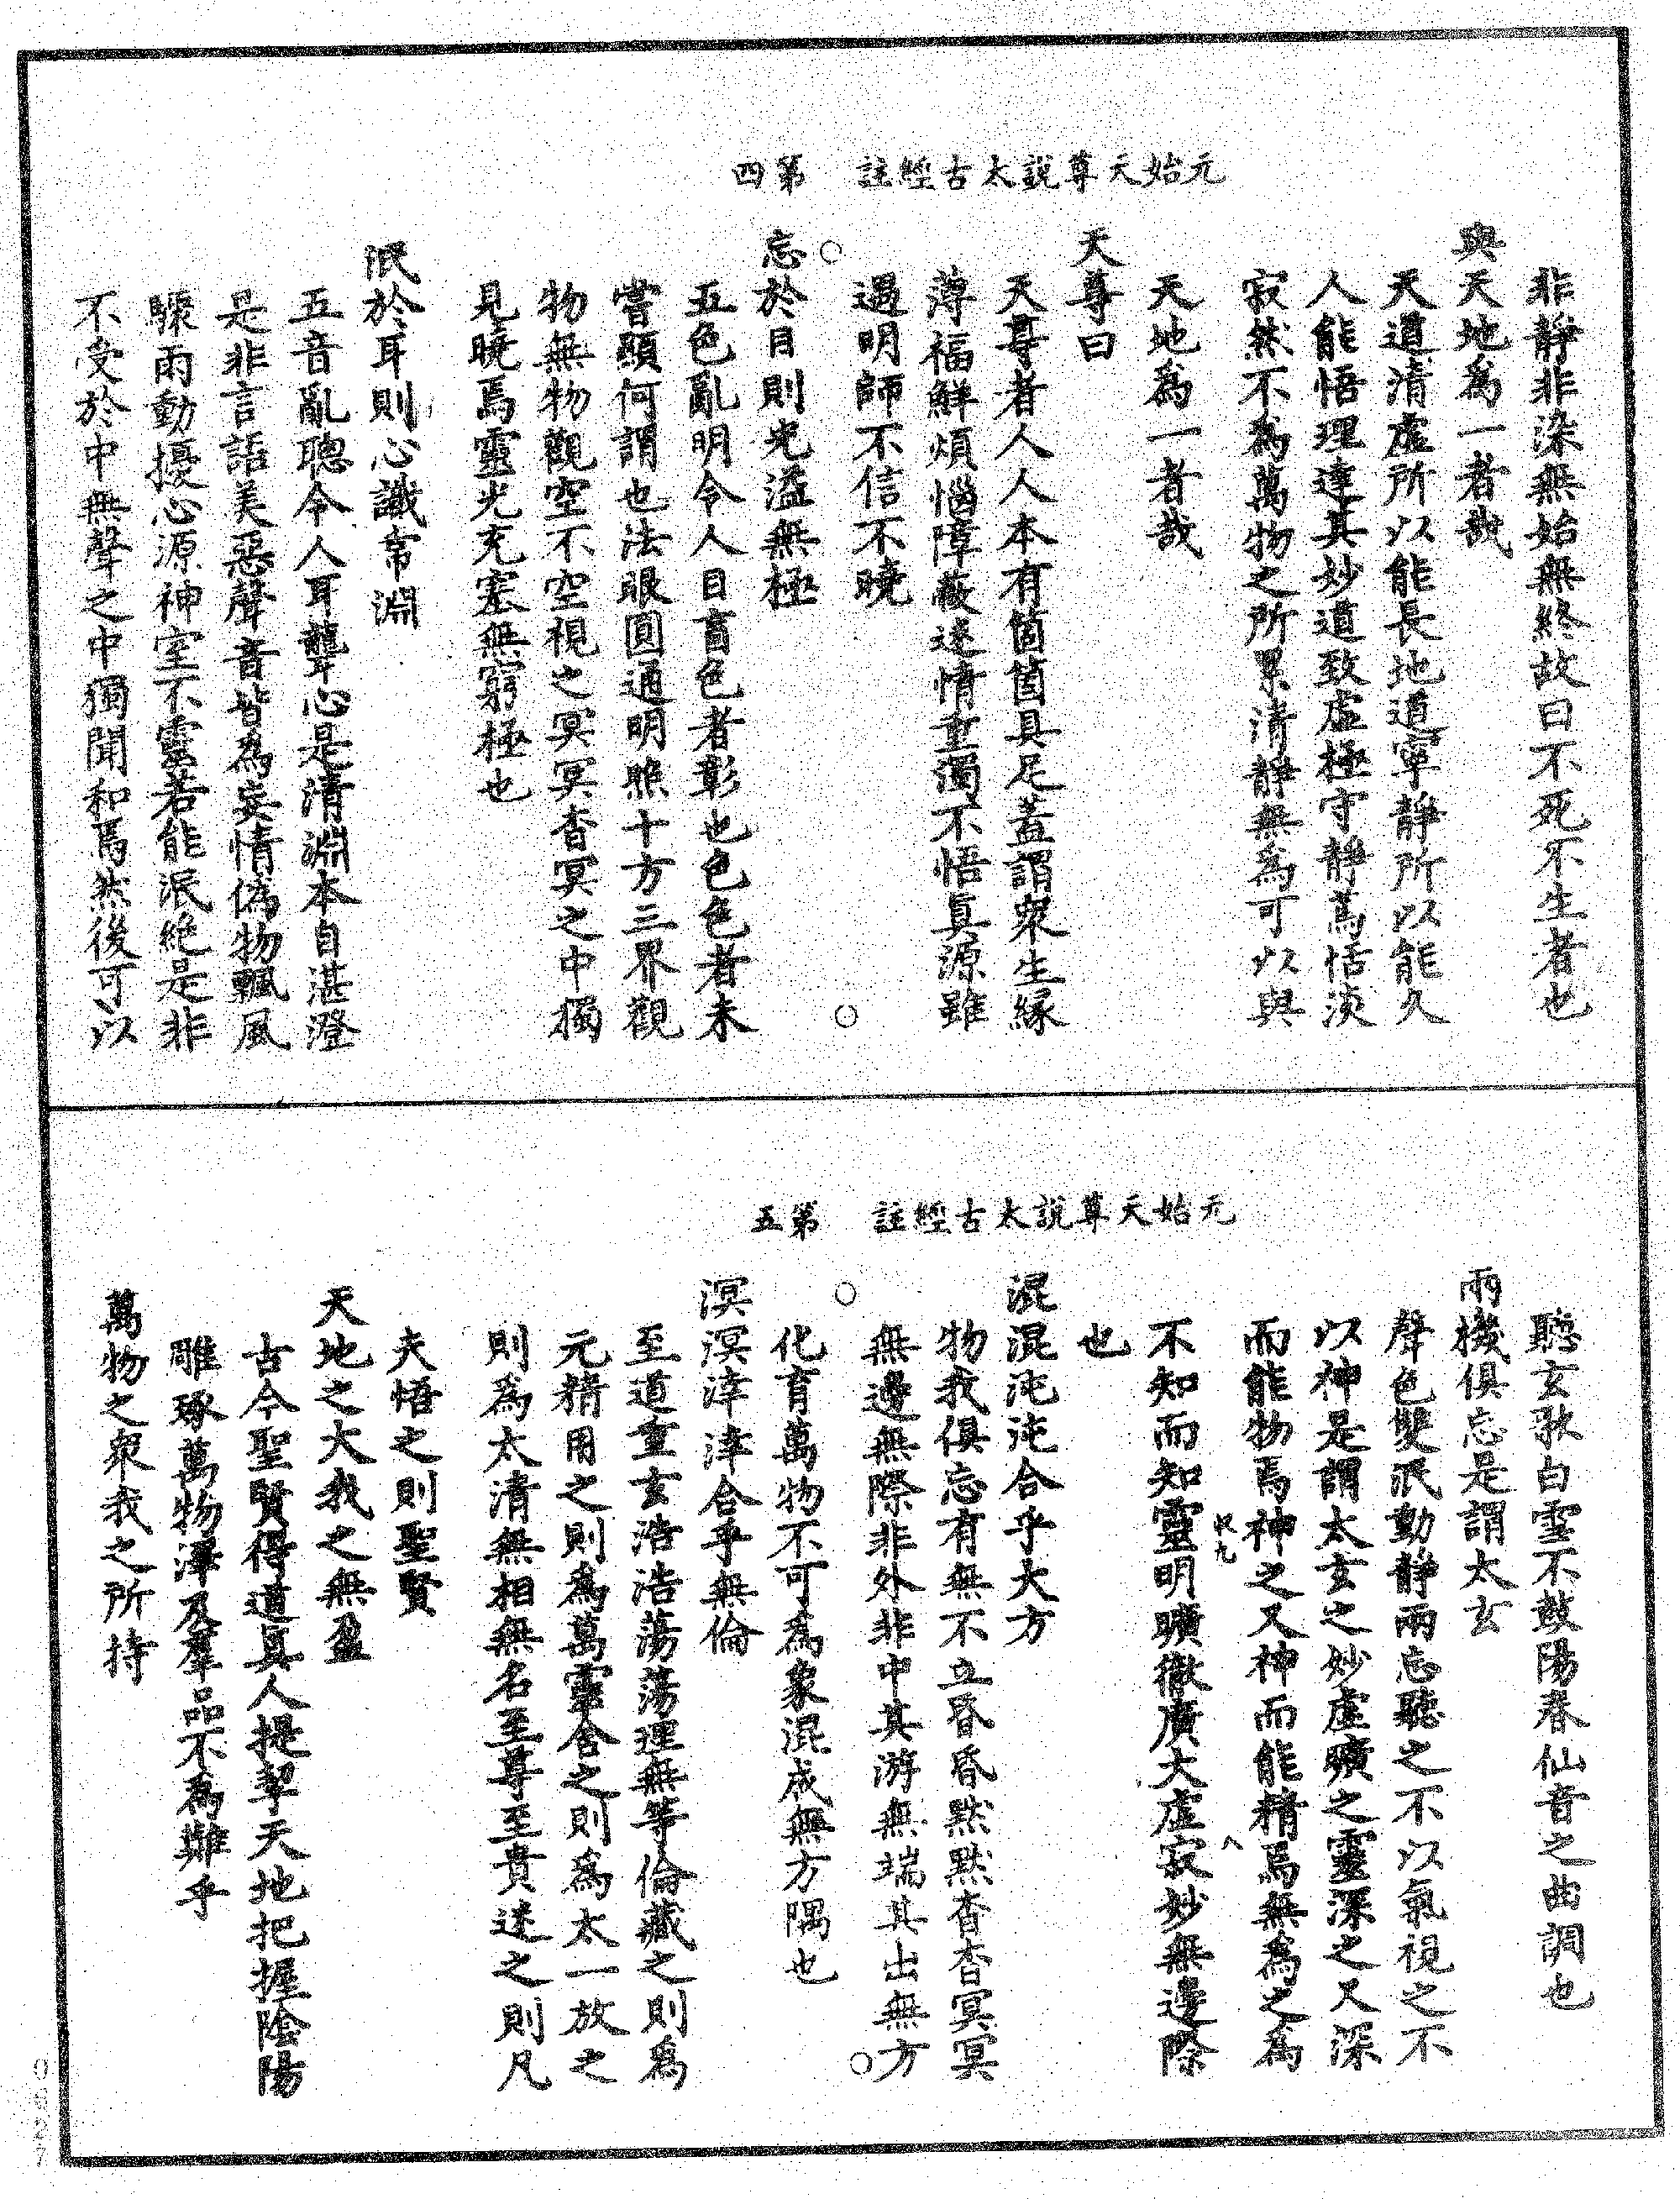 元始天尊說太古經註　第四
非靜非染無始無終故曰不死不生者也
與天地爲一者哉
天道清虛所以能長地道寧靜所以能久
人能悟理達其妙道致虛極守靜篤恬淡
寂然不爲萬物之所累清靜無爲可以與
天地爲一者哉
天尊曰
天尊者人人本有箇箇具足蓋謂衆生緣
薄福鮮煩惱障蔽迷情重濁不悟眞源雖
遇明師不信不曉
忘於目則光溢無極
五色亂明令人目盲色者彰也色色者未
嘗顯何謂也法眼圓通明照十方三界觀
物無物觀空不空視之冥冥杳冥之中獨
見曉焉靈光充塞無窮極也
泯於耳則心識常淵
五音亂聰令人耳聾心是清淵本自湛澄
是非言語美惡聲音皆爲妄情偽物飄風
驟雨動擾心源神室不靈若能泯絶是非
不受於中無聲之中獨聞和焉然後可以
元始天尊說太古經註　第五
聽玄歌白雪不鼓陽春仙音之曲調也
兩機俱忘是謂太玄
聲色雙泯動靜兩忘聽之不以氣視之不
以神是謂太玄之妙虛曠之靈深之又深
而能物焉神之又神而能精焉無爲之爲
不知而知靈明曠徹廣大虛寂妙無邊際
也
混混沌沌合乎大方
物我俱忘有無不立昏昏默默杳杳冥冥
無邊無際非外非中其游無端其出無方
化育萬物不可爲象混成無方隅也
溟溟涬涬合乎無倫
至道重玄浩浩蕩蕩理無等倫藏之則爲
元精用之則爲萬靈含之則爲太一放之
則爲太清無相無名至尊至貴迷之則凡
夫悟之則聖賢
天地之大我之無盈
古今聖賢得道真人提挈天地把握陰陽
雕琢萬物澤及羣品不爲難乎
萬物之衆我之所持
0627